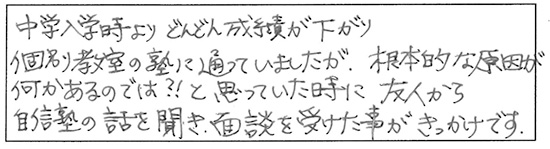 中学入学時より どんどん成績が下がり
個別教室の塾に通っていましたが、根本的な原因が
何かあるのでは?!と思っていた時に 友人から
自信塾の話を聞き、面談を受けた事がきっかけです.